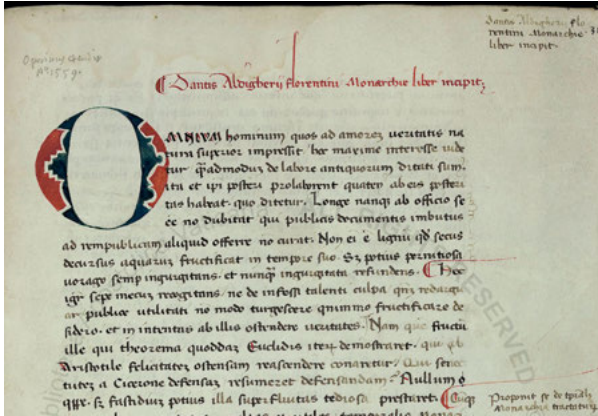 Dantis Aldigherij flo
rentini Monarchie
liber incipit.
Oporinus excudit
Aº 1559.
Dantis Aldigherij florentini Monarchie liber incipit
OMNIUM hominum quos ad amorez ueritatis na
tura superior impressit hoc maxime interesse uide
tur q̃admoduz de labore antiquorum ditati sunt
ita et ipi posteri prolaborent quaten ab eis posteri
tas habeat quo ditetur. Longe nanqꝫ ab officio se
ee no dubitat qui publicis documentis imbutus
ad rempublicam aliquid offerre no curat. Non ei ẽ lignũ qd̃ secus
decursus aquaruz fructificat in tempore suo. Sꝫ potius pernitiosa
uorago semp ingurgitans et nunqꝫ ingurgitata refundens. Hec
igr̃ sepe mecuz recogitans ne de infossi talenti culpa redargu
ar publice utilitati no modo turgescere quinimo fructificare de
sidero. et in intentas ab illis ostendere ueritates. Nam que fructũ
ille qui theorema quoddaz Euclidis iteꝝ demostraret. qui ab
Aristotile felicitatez ostensam reostendere conaretur. Qui senec
tutez a Cicerone defensaz resumeret defensandam. Nullum
sꝫ fastidiuz potius illa superfluitas tediosa prestaret.
Proponit se de tpali
Monarchia tractaturũ
RESERVED